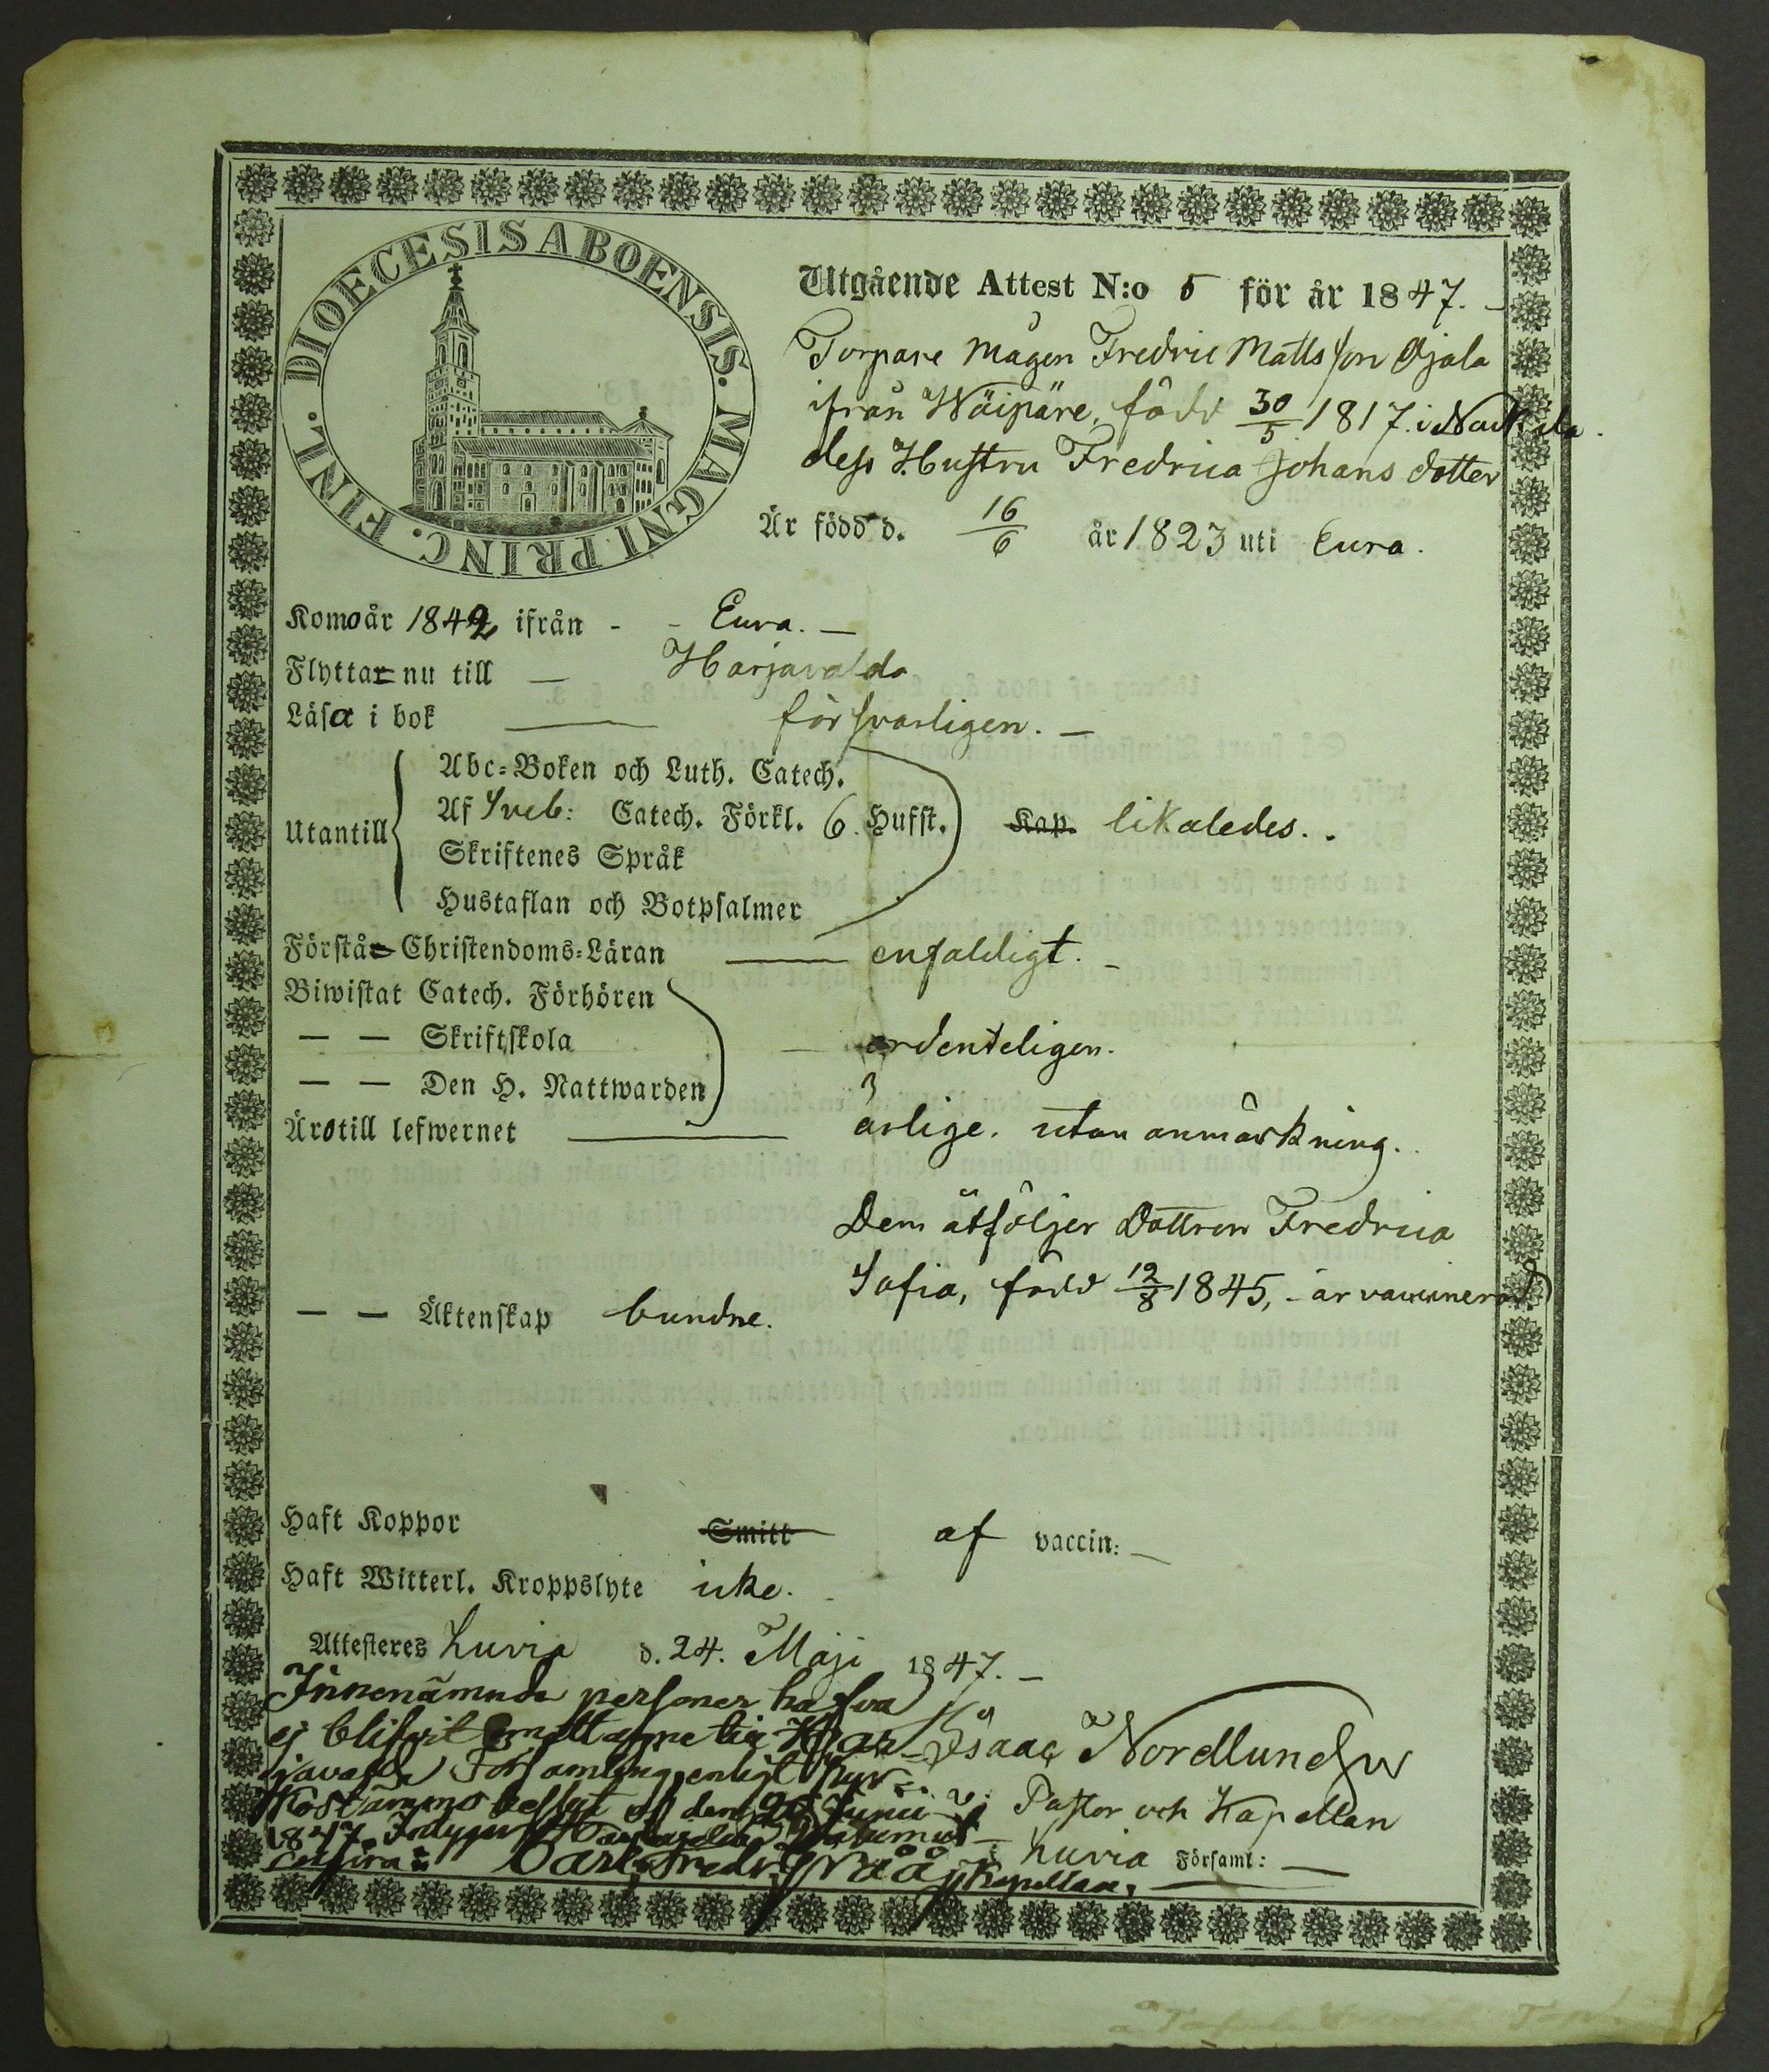 DIOECESIS ABOENSIS. MAGNI PRINC. FINL.
Utgående Attest N:o 5 för år 1847.
Torpare mågen Fredric Mattsson Ojala
ifrån Wäipäre, född 30/5 1817. i Nackila.
dess Hustru Fredrica Johans dotter
Är född d. 16/6 år 1823 uti Eura.
Komo år 1842 ifrån - - Eura. —
Flytta nu till — Harjavalda
Läsa i bok — försvarligen. —
Abc-Boken och Luth. Catech.
Utantill Af Sveb: Catech. Förkl. 6. Hufst. Kap. likaledes.
Skriftenes Språk
Hustaflan och Botpsalmer
Förstå Christendoms-Läran — enfaldigt. -
Biwistat Catech. Förhören
— — Skriftskola — ordenteligen.
— — Den H. Nattwarden
Äro till lefwernet — ärlige. utan anmärkning.
Dem åtföljer Dottren Fredrica
Sofia, född 12/8 1845, - är vaccinerad
— — Äktenskap bundne.
Haft Koppor Smitt af vaccin: —
Haft Witterl. Kroppslyte icke.
Attesteres Luvia d. 24. Maji 1847. —
Innenämnde personer hafva
ej blifvit emottagne till Har-
javalda Församling, enligt Kyr-
kostämmo beslut af den 20 Junii
1847.
Carl Fredr. Kapellan,
Isaac Nordlund
v. Pastor och Kapellan
i Luvia Församl: —